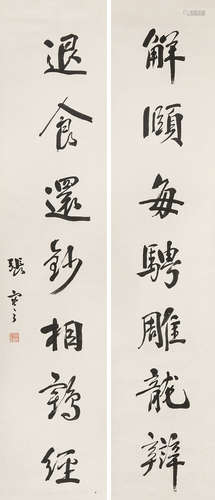 解頤每騁雕龍辯
退食還鈔相鶴經
張寒